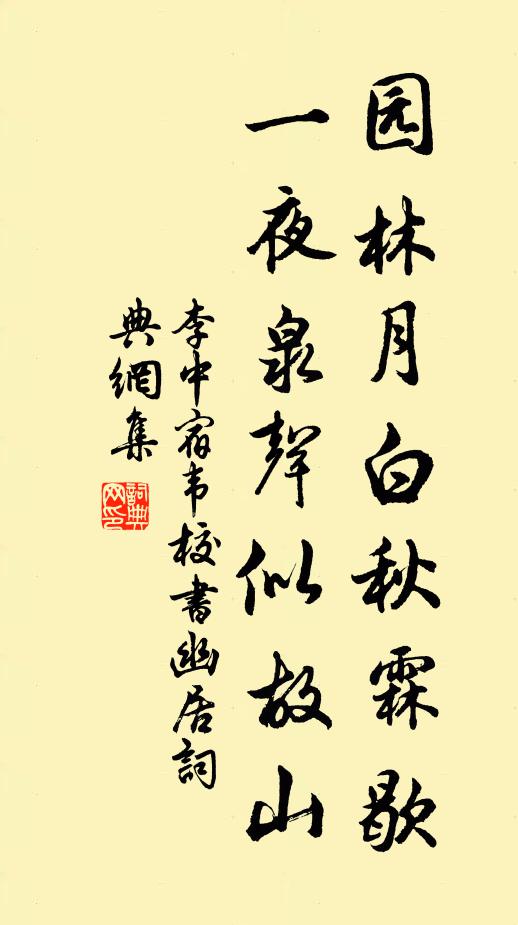 园林月白秋霖歇
一夜泉聲似故山
李中宿韦校書幽居詞
典網集
詞典
网印